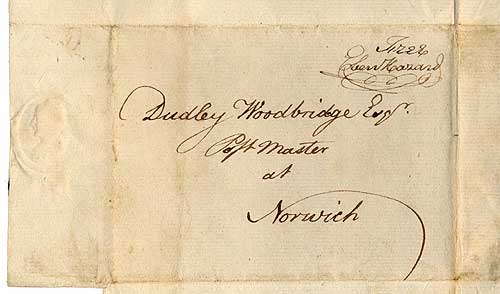 Free
Eben Hazard
Dudley Woodbridge Esqr.
Post Master
at
Norwich